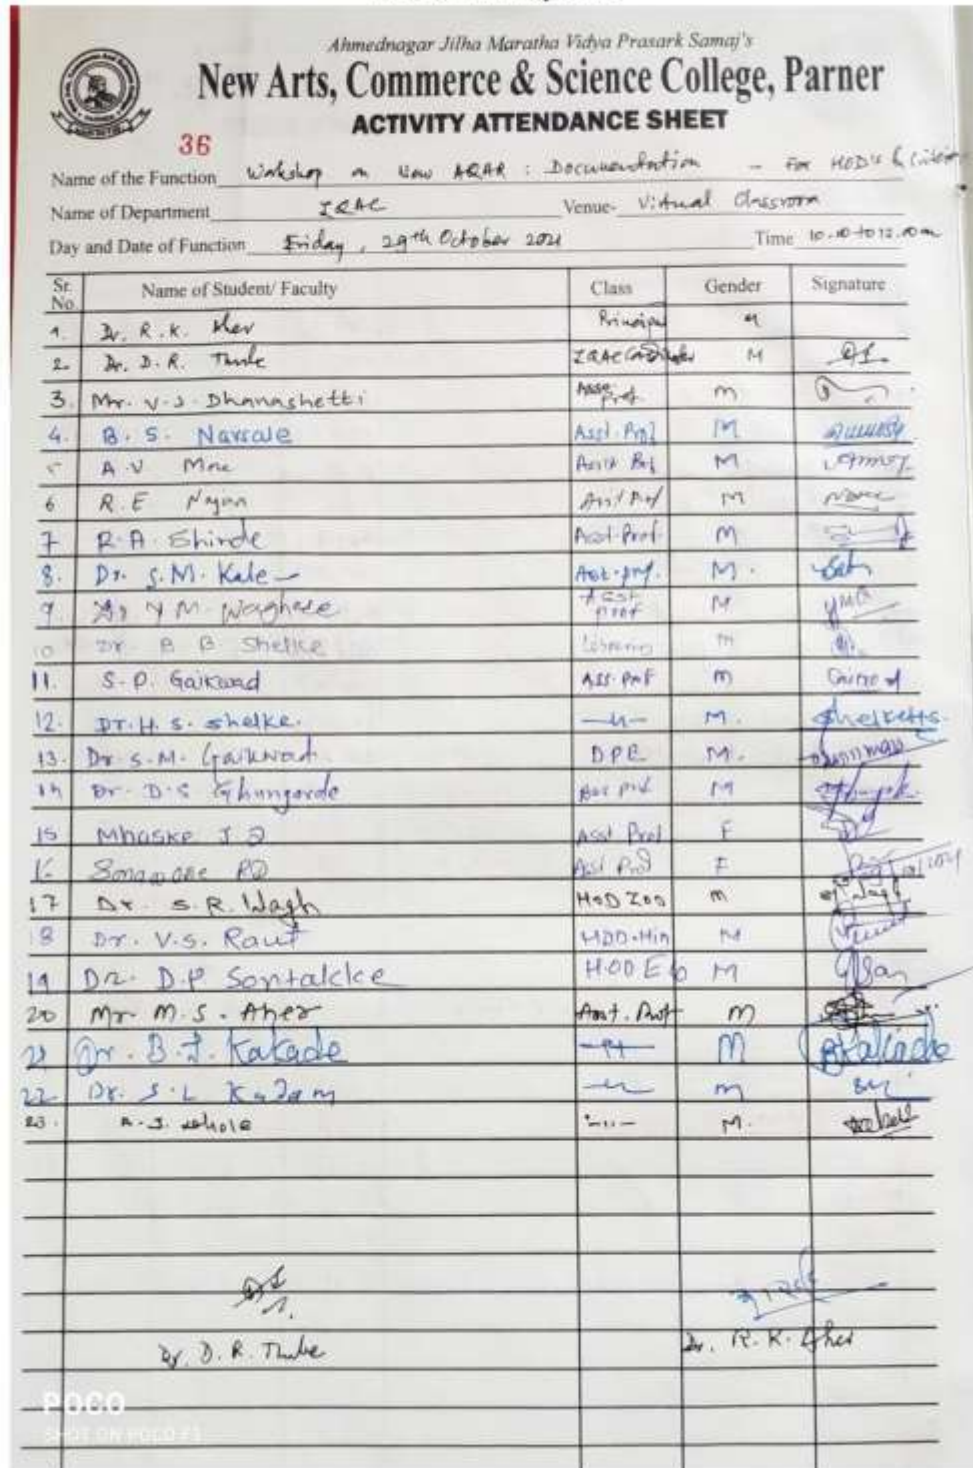 Ahmednagar Jilha Maratha Vidya Prasark Samaj's
New Arts, Commerce & Science College, Parner
ACTIVITY ATTENDANCE SHEET
36
Name of the Function Workshop on New AQAR : Documentation - For HOD's &
Name of Department IQAC Venue- Virtual Classroom
Day and Date of Function Friday, 29th October 2021 Time 10.10 to 12.10
Sr. No. Name of Student/ Faculty Class Gender Signature
1. Dr. R.K. Aher Principal M
2. Dr. D.R. Thube IQAC M
3. Mr. V.S. Dhanashetti Asso. Prof. M
4. B. S. Narsale Asst. Prof M
5 A V More Asst Prof M
6 R.E Asst Prof M
7 R.A. Shinde Asst. Prof. M
8. Dr. S.M. Kale Ast. prof. M.
9. Dr Y M. Waghere Asst prof M
10 Dr B B Shelke Librarian M
11. S.P. Gaikwad Ass. Prof M
12. Dr. H. S. Shelke. -〃- M.
13. Dr. S.M. Gaikwad DPE M.
14 Dr. D.S Ghungarde Ass Prof M
15 Mhaske J D Asst Prof F
16 Sonawane Asst Prof F
17 Dr. S.R. Wagh HOD Zoo M
18 Dr. V.S. Raut HOD-Hin M
19 Dr. D.P Sontakke HOD M
20 Mr M.S. Aher Asst. Prof M
21 Dr. B.J. Kakade -〃- M
22 Dr. S.L Kadam -〃- M
23. -〃- M.
Dr. D.R. Thube Dr. R.K. Aher
POCO
SHOT ON POCO F1